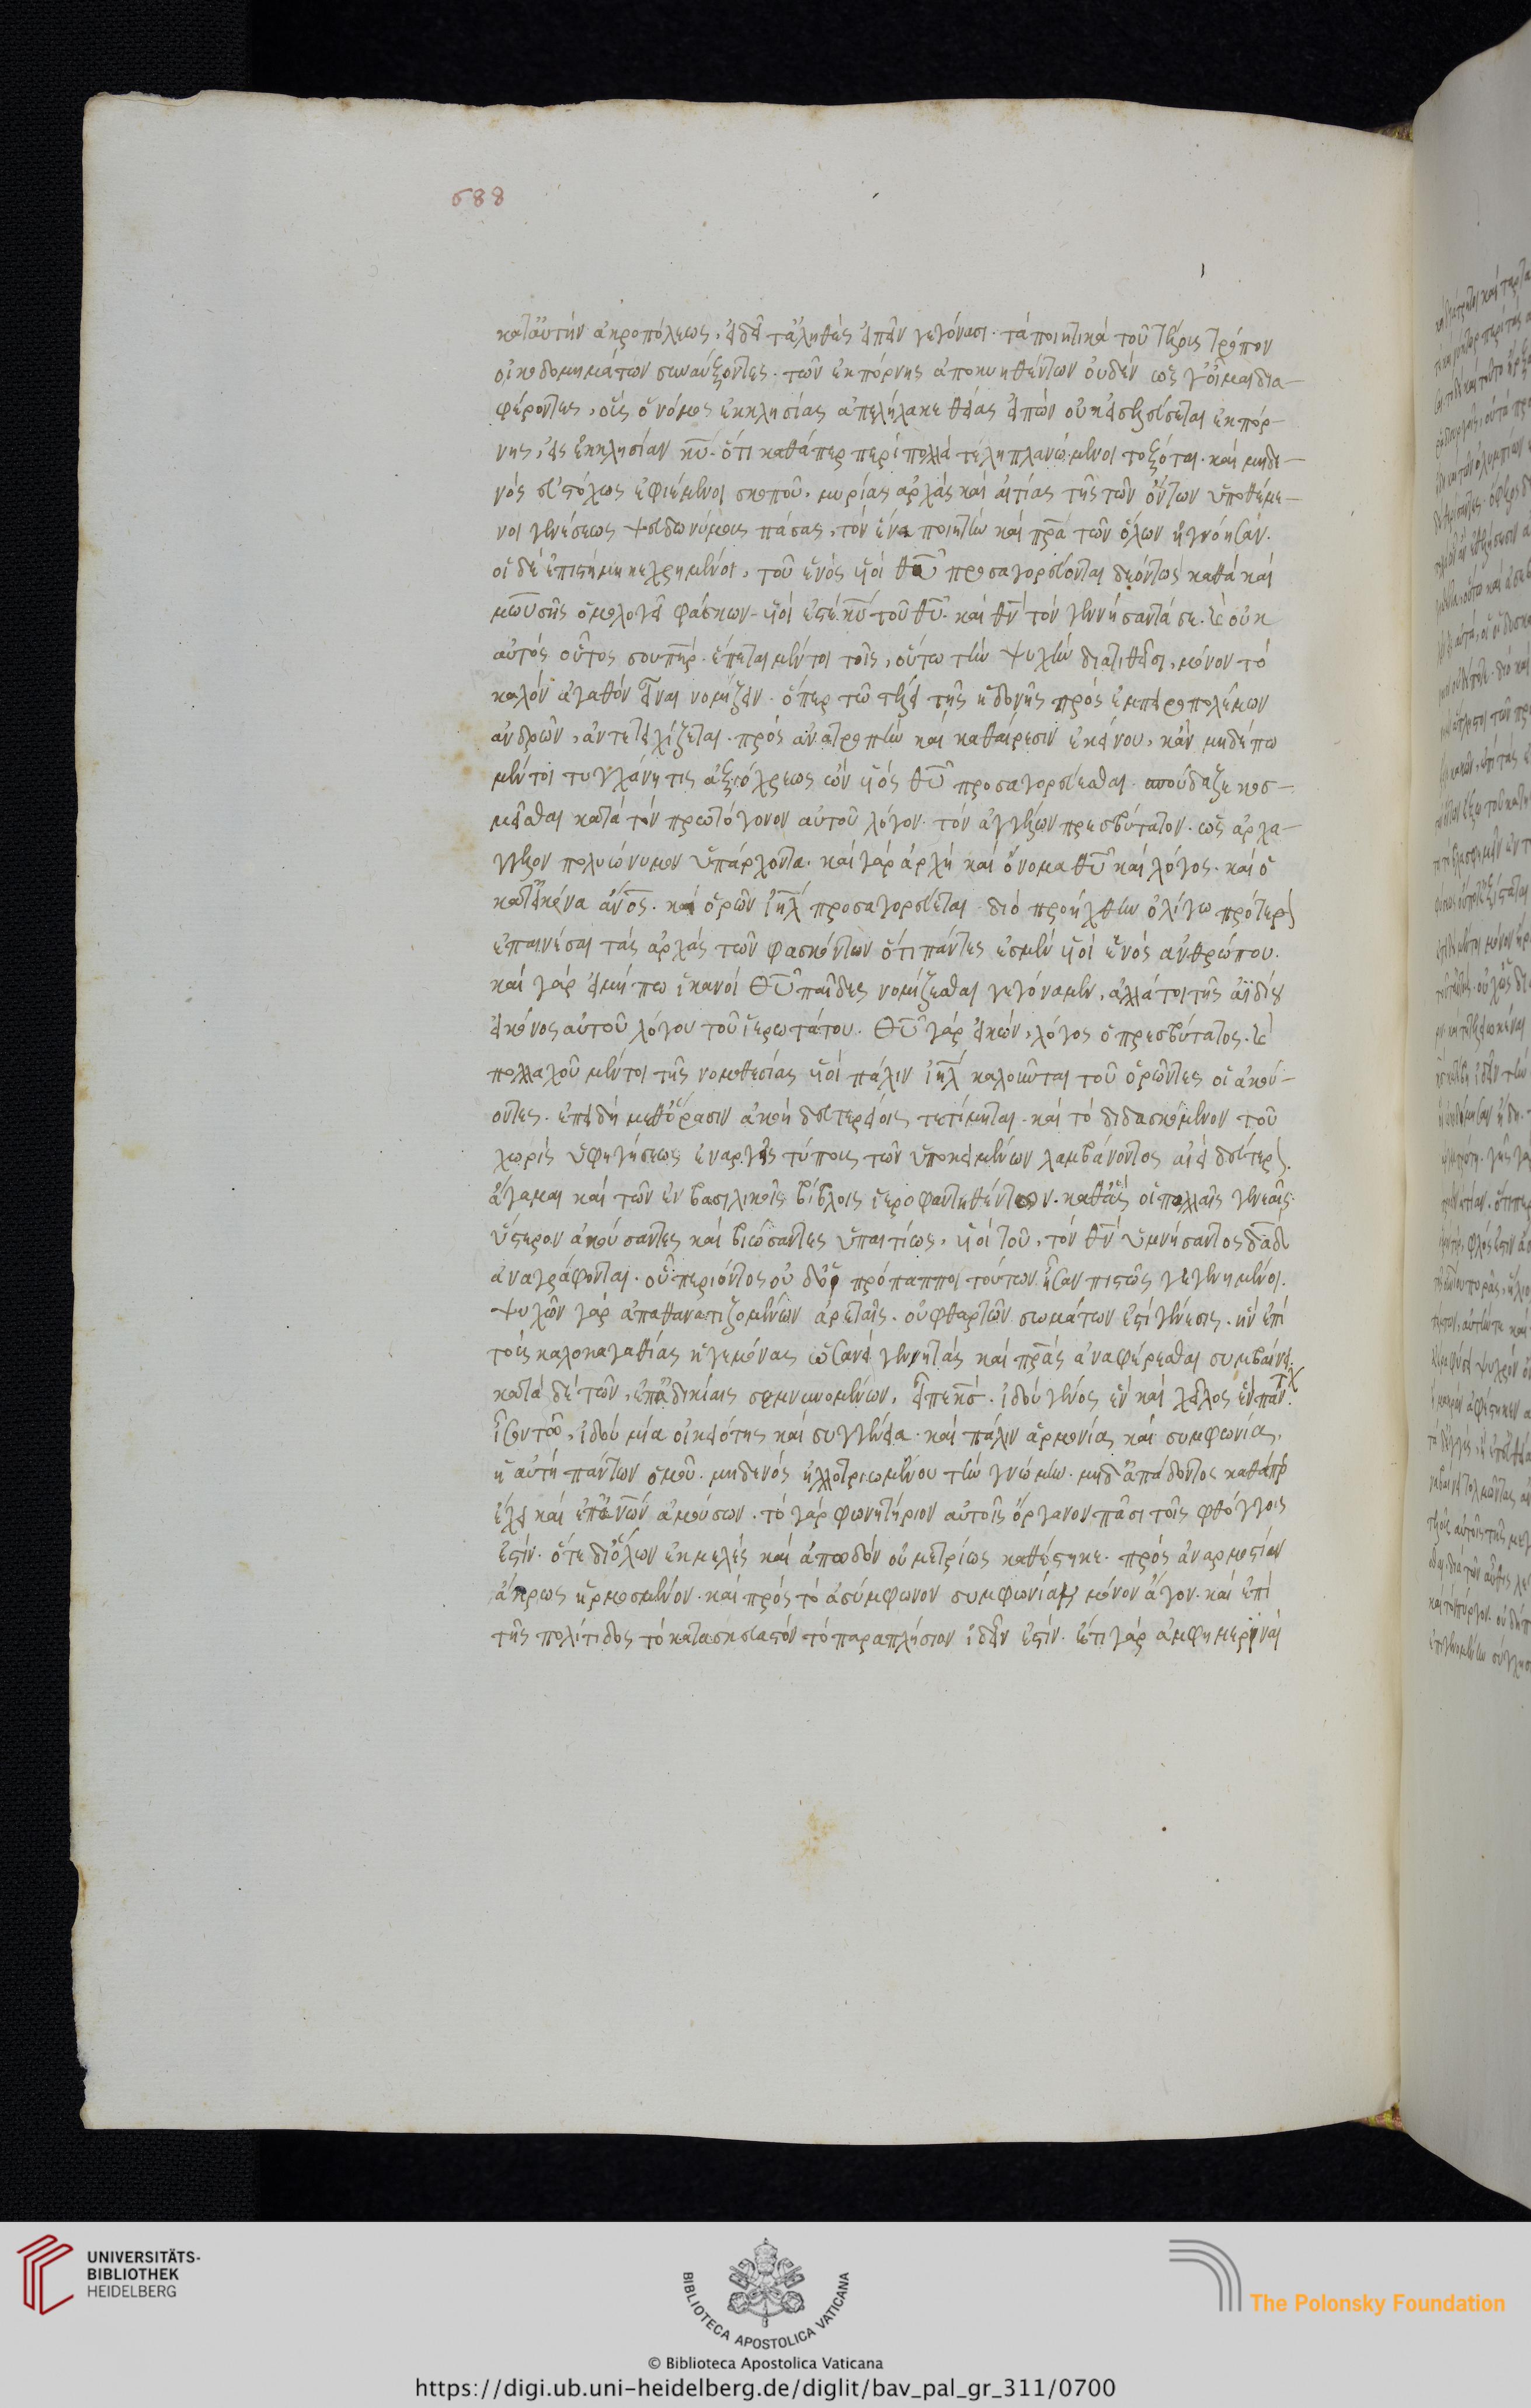 688
κατ' αὐτὴν ἀκροπόλεως, εἰ δεῖ τἀληθὲς εἰπεῖν γεγόνασι. τὰ ποιητικὰ τοῦ τέρις τρόπον
οἰκοδομημάτων συναύξοντες. τῶν ἐκ πόρνης ἀποκυηθέντων οὐδὲν ὥς γ' οἶμαι δια-
φέροντες, οὓς ὁ νόμος ἐκκλησίας ἀπελήλακε θείας εἰπὼν οὐκ εἰσελεύσεται ἐκ πόρ-
νης, εἰς ἐκκλησίαν κ̅υ̅. ὅτι καθάπερ περὶ πολλὰ τέλη πλανώμενοι τοξόται. καὶ μηδε-
νὸς εὐστόχως ἐφιέμενοι σκοποῦ, μυρίας ἀρχὰς καὶ αἰτίας τῆς τῶν ὄντων ὑποθέμε-
νοι γενέσεως ψευδωνύμους πάσας, τὸν ἕνα ποιητὴν καὶ π̅ρ̅α̅ τῶν ὅλων ἠγνόησαν.
οἱ δὲ ἐπιστήμη κεχρημένοι, τοῦ ἑνὸς υἱοὶ θ̅υ̅ προσαγορεύονται δεόντως καθὰ καὶ
μωυσῆς ὁμολογεῖ φάσκων. υἱοί ἐστε κ̅υ̅ τοῦ θ̅υ̅. καὶ θ̅ν̅ τὸν γεννήσαντά σε. καὶ οὐκ
αὐτὸς οὗτος σου π̅η̅ρ̅. ἕπεται μέντοι τοῖς, οὕτω τὴν ψυχὴν διατιθεῖσι, μόνον τὸ
καλὸν ἀγαθὸν εἶναι νομίζειν. ὅπερ τῶ τέλει τῆς ἡδονῆς πρὸς ἐμπειροπολέμων
ἀνδρῶν, ἀντετειχίζεται. πρὸς ἀνατροπὴν καὶ καθαίρεσιν ἐκείνου, κἂν μηδέπω
μέντοι τυγχάνη τις ἀξιόχρεως ὢν υἱὸς θ̅υ̅ προσαγορεύεσθαι. σπούδαζε κοσ-
μεῖσθαι κατὰ τὸν πρωτόγονον αὐτοῦ λόγον. τὸν ἀγγέλων πρεσβύτατον. ὡς ἀρχά-
γγελον πολυώνυμον ὑπάρχοντα. καὶ γὰρ ἀρχὴ καὶ ὄνομα θ̅υ̅ καὶ λόγος. καὶ ὁ
κατ' εἰκόνα ἄ̅ν̅ο̅ς̅. καὶ ὁρῶν ἰ̅η̅λ̅ προσαγορεύεται. διὸ προήχθην ὀλίγω πρότερον
ἐπαινέσαι τὰς ἀρχὰς τῶν φασκόντων ὅτι πάντες ἐσμὲν υἱοὶ ἑνὸς ἀνθρώπου.
καὶ γὰρ εἰ μήπω ἱκανοὶ θ̅υ̅ παῖδες νομίζεσθαι γεγόναμεν, ἀλλά τοι τῆς ἀϊδίου
εἰκόνος αὐτοῦ λόγου τοῦ ἱερωτάτου. θ̅υ̅ γὰρ εἰκών, λόγος ὁ πρεσβύτατος. καὶ
πολλαχοῦ μέντοι τῆς νομοθεσίας υἱοὶ πάλιν ἰ̅η̅λ̅ καλοῦνται τοῦ ὁρῶντος οἱ ἀκού-
οντες. ἐπειδὴ μεθ' ὅρασιν ἀκοὴ δευτερείοις τετίμηται. καὶ τὸ διδασκόμενον τοῦ
χωρὶς ὑφηγήσεως ἐναργεῖς τύπους τῶν ὑποκειμένων λαμβάνοντος ἀεὶ δεύτερον.
ἄγαμαι καὶ τῶν ἐν βασιλικοῖς βίβλοις ἱεροφαντηθέντων. καθ' ἃς οἱ πολλαῖς γενεαῖς
ὕστερον ἀκούσαντες καὶ βιώσαντες ὑπαιτίως, υἱοὶ τοῦ, τὸν θ̅ν̅ ὑμνήσαντος δ̅α̅δ̅
ἀναγράφονται. οὗ περιόντος οὐ δ' οἱ πρόπαπποι τούτων ἦσαν πιστῶς γεγενημένοι.
ψυχῶν γὰρ ἀπαθανατιζομένων ἀρεταῖς. οὐ φθαρτῶν σωμάτων ἐστὶ γένεσις. ἣν ἐπὶ
τοὺς καλοκαγαθίας ἡγεμόνας ὡσανεὶ γεννητὰς καὶ π̅ρ̅α̅ς̅ ἀναφέρεσθαι συμβαίνει.
κατὰ δὲ τῶν, ἐπ' ἀδικίαις σεμνυνομένων, εἶπε κ̅ς̅. ἰδοὺ γένος ἓν καὶ χεῖλος ἓν πάντων.
ἴσον τῶ, ἰδοὺ μία οἰκειότης καὶ συγγένεια. καὶ πάλιν ἁρμονίας καὶ συμφωνίας,
ἡ αὐτὴ πάντων ὁμοῦ. μηδενὸς ἠλλοτριωμένου τὴν γνώμην. μηδ' ἀπάδοντος καθάπερ
ἔχει καὶ ἐπ' ἀ̅ν̅ω̅ν̅ ἀμούσων. τὸ γὰρ φωνητήριον αὐτοῖς ὄργανον πᾶσι τοῖς φθόγγοις
ἐστίν. ὅτε δι' ὅλων ἐκμελὲς καὶ ἀπωδὸν οὐ μετρίως καθέστηκε. πρὸς ἀναρμοστίαν
ἄκρως ἡρμοσμένον. καὶ πρὸς τὸ ἀσύμφωνον συμφωνίαν μόνον ἄγον. καὶ ἐπὶ
τῆς πολίτιδος τὸ κατασκευαστὸν τὸ παραπλήσιον ἰδεῖν ἐστίν. ἔτι γὰρ ἀμφημεριναὶ
UNIVERSITÄTS-
BIBLIOTHEK
HEIDELBERG
BIBLIOTECA APOSTOLICA VATICANA
The Polonsky Foundation
© Biblioteca Apostolica Vaticana
https://digi.ub.uni-heidelberg.de/diglit/bav_pal_gr_311/0700